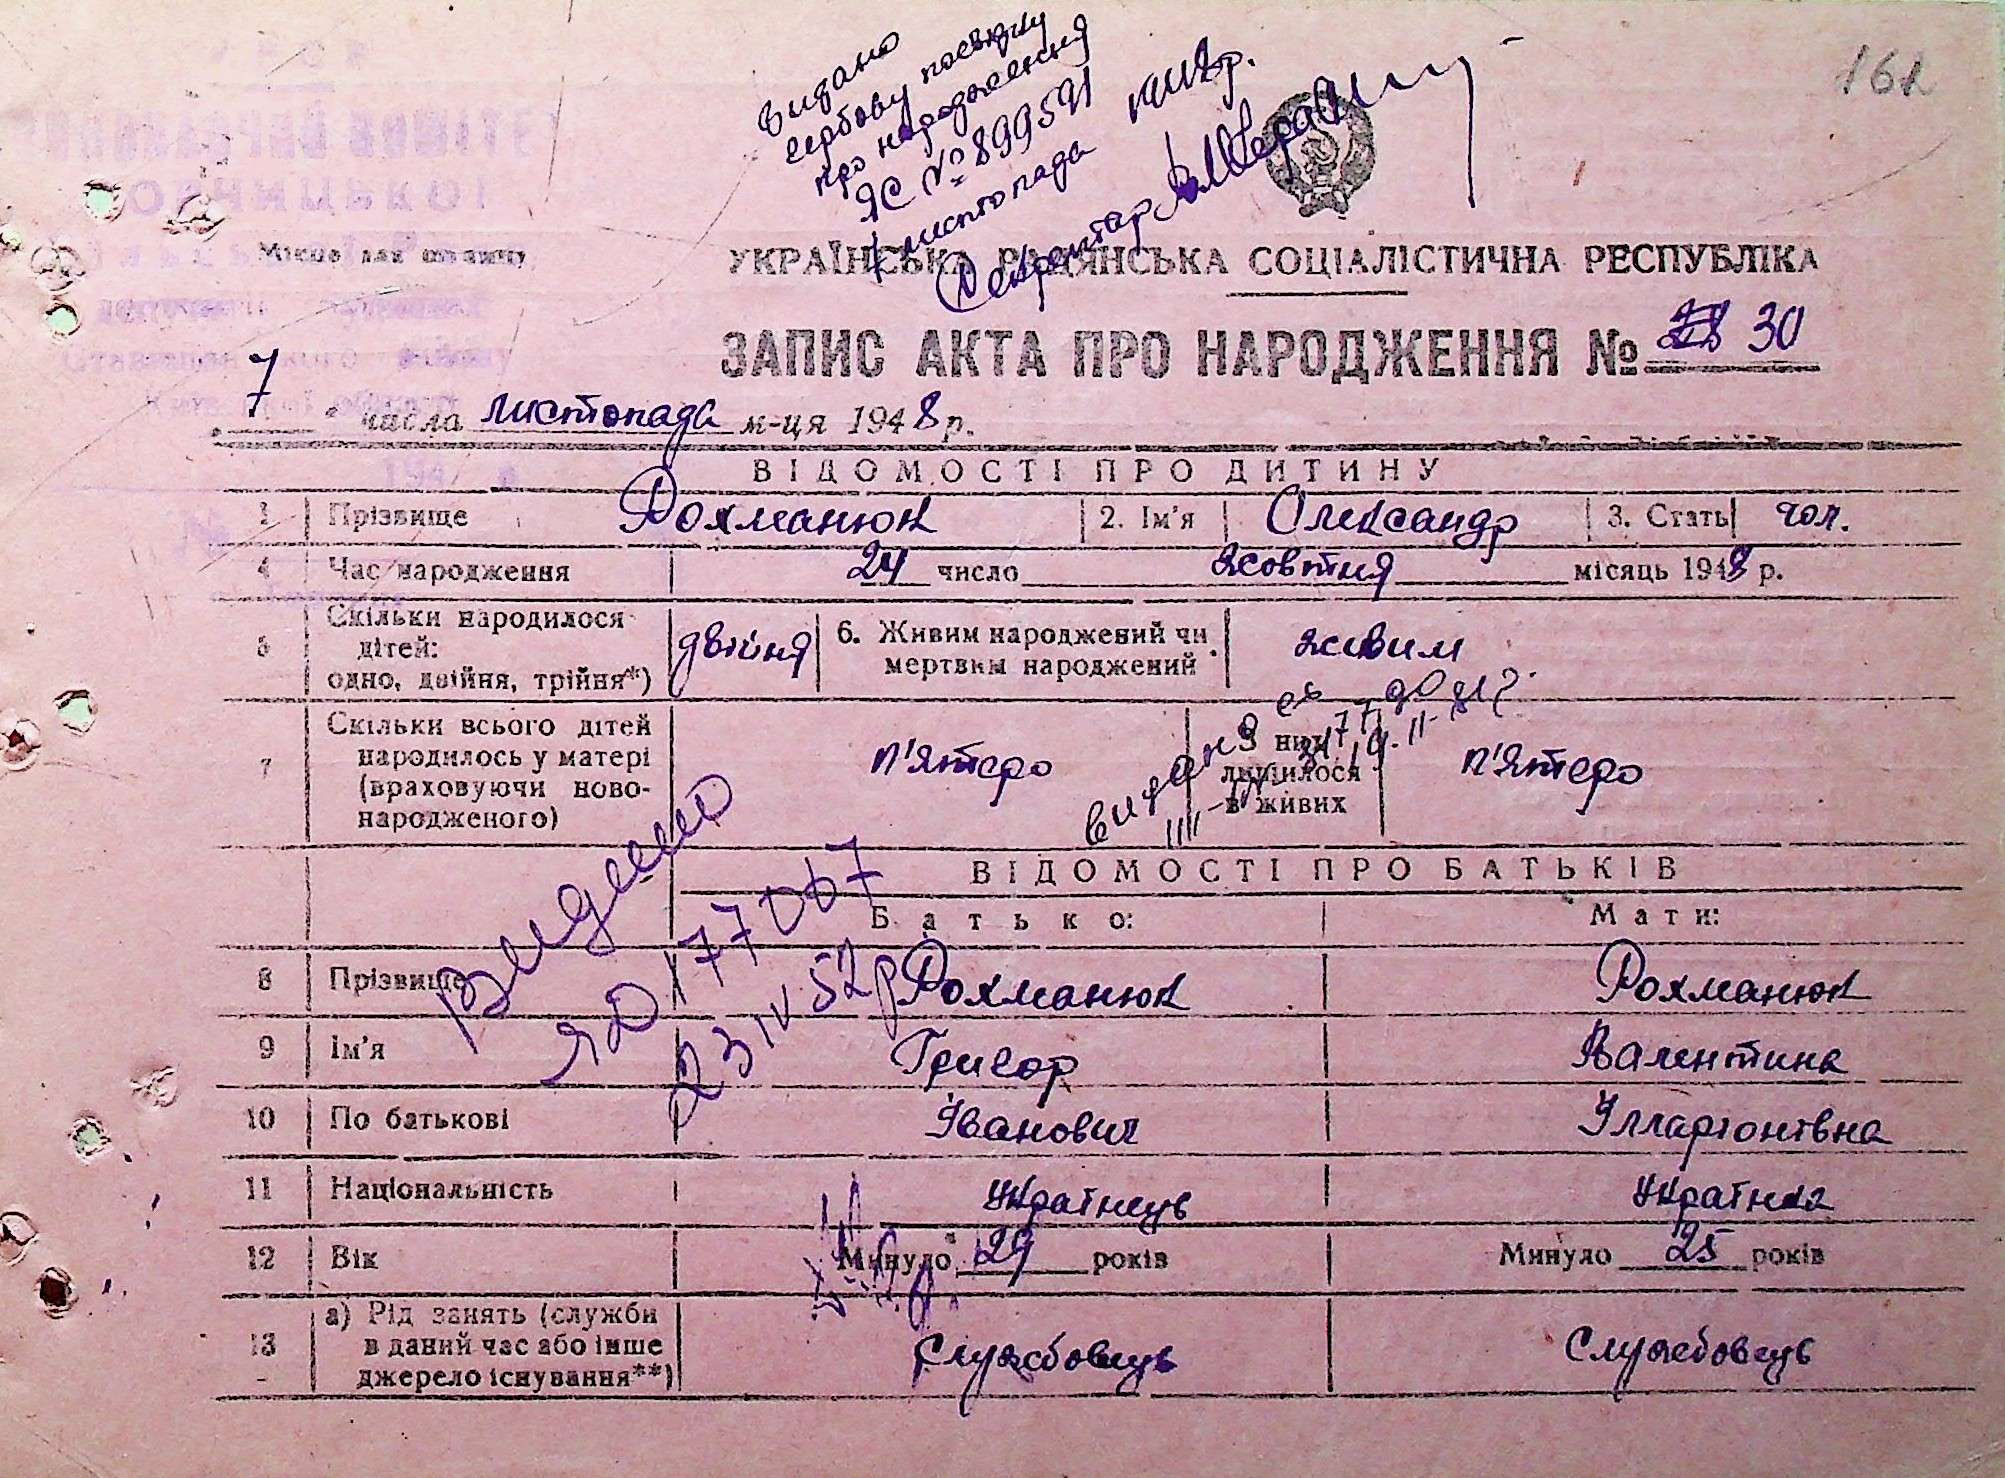 162
Видано
гербову посвідку
про народження
ЯС № 899591
7 листопада 1948 р.
Секретар
Місце для штампу
УКРАЇНСЬКА РАДЯНСЬКА СОЦІАЛІСТИЧНА РЕСПУБЛІКА
ЗАПИС АКТА ПРО НАРОДЖЕННЯ № 30
7 числа листопада м-ця 1948 р.
ВІДОМОСТІ ПРО ДИТИНУ
1 Прізвище Рохманюк 2. Ім'я Олександр 3. Стать чол.
4 Час народження 24 число жовтня місяць 1948 р.
5 Скільки народилося дітей: одно, двійня, трійня*) двійня 6. Живим народжений чи мертвим народжений живим
7 Скільки всього дітей народилось у матері (враховуючи новонародженого) п'ятеро З них лишилося в живих п'ятеро
ВІДОМОСТІ ПРО БАТЬКІВ
Батько: Мати:
8 Прізвище Рохманюк Рохманюк
9 Ім'я Григор Валентина
10 По батькові ІвановичІлларіонівна
11 Національність Українець Українка
12 Вік Минуло 29 років Минуло 25 років
13 а) Рід занять (служби в даний час або інше джерело існування**) Службовець Службовець
Видано
ЯД 177067
23 IV 52 р